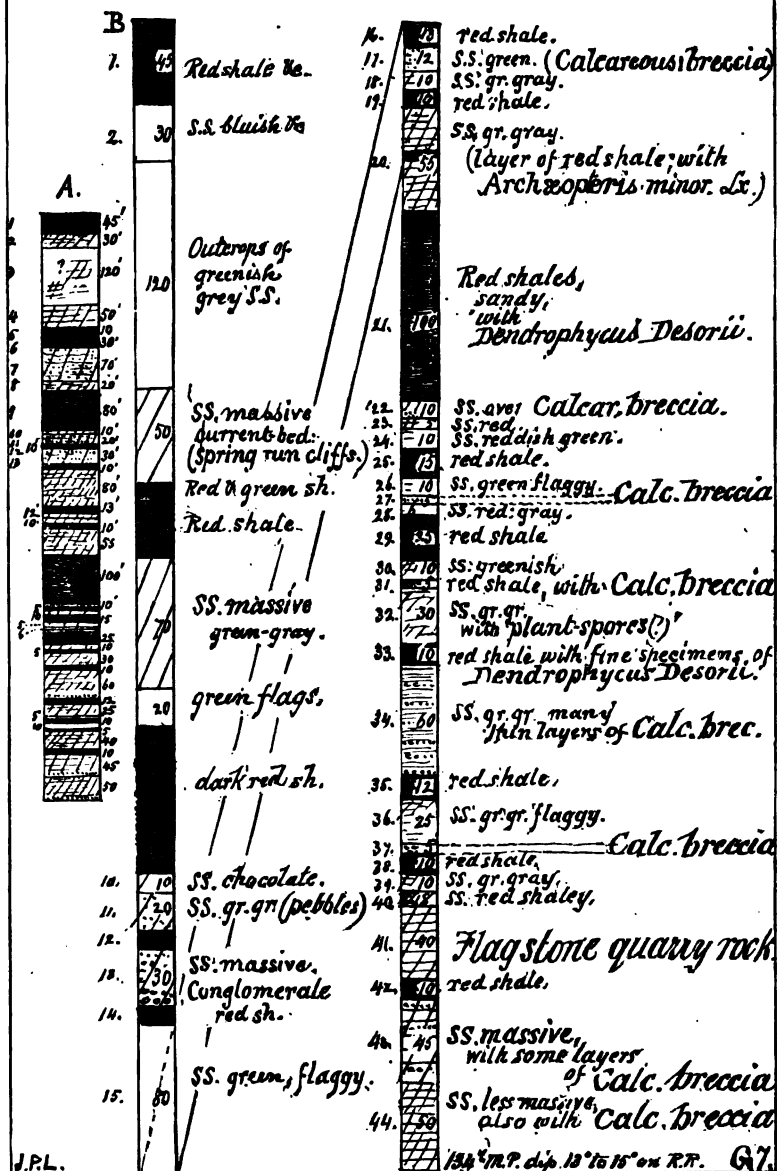 B
A.
1. 45 Red shale &c.
2. 30 S.S. bluish &c
120 Outcrops of
greenish
grey S.S.
50 SS. massive
current-bed:
(Spring run cliffs.)
Red & green sh.
Red shale
70 SS. massive
green-gray.
20 green flags,
dark red sh.
10. 10 SS. chocolate.
11. 20 SS. gr. gr. (pebbles)
12.
13. 30 SS. massive.
Conglomerate
14. red sh.
15. 80 SS. green, flaggy.
1 45'
2 30'
? 120'
4 50'
5 10
6 30'
7 70'
8 20'
10'
20'
30'
10'
80'
13'
10'
55
100'
10'
15
25
10
30
10
60
40
10
45
50
16. red shale.
17. 12 S.S. green. (Calcareous breccia)
18. 10 SS. gr. gray.
19. 10 red shale.
20. 55 SS. gr. gray.
(layer of red shale; with
Archæopteris minor. Lx.)
21. 100 Red shales,
sandy,
with
Dendrophycus Desorii.
22. 10 SS. over Calcar. breccia.
23. 5 SS. red.
24. 10 SS. reddish green.
25. 15 red shale.
26. 10 SS. green flaggy.
27. 5 Calc. breccia
28. SS. red. gray.
29. 25 red shale
30. 10 SS. greenish
31. 5 red shale, with Calc. breccia
32. 30 SS. gr. gr.
with "plant-spores(?)"
33. 10 red shale with fine specimens of
Dendrophycus Desorii.
34. 60 SS. gr. gr. many
thin layers of Calc. brec.
35. 12 red shale,
36. 25 SS. gr. gr. flaggy.
37. 5 Calc. breccia
38. 10 red shale,
39. 10 SS. gr. gray,
40. SS. red shaley,
41. 40 Flagstone quarry rock.
42. 10 red shale,
43. 45 SS. massive,
with some layers
of Calc. breccia
44. 50 SS. less massive,
also with Calc. breccia
134th M.P. dip. 13° to 15° on R.R. G7.
J.P.L.